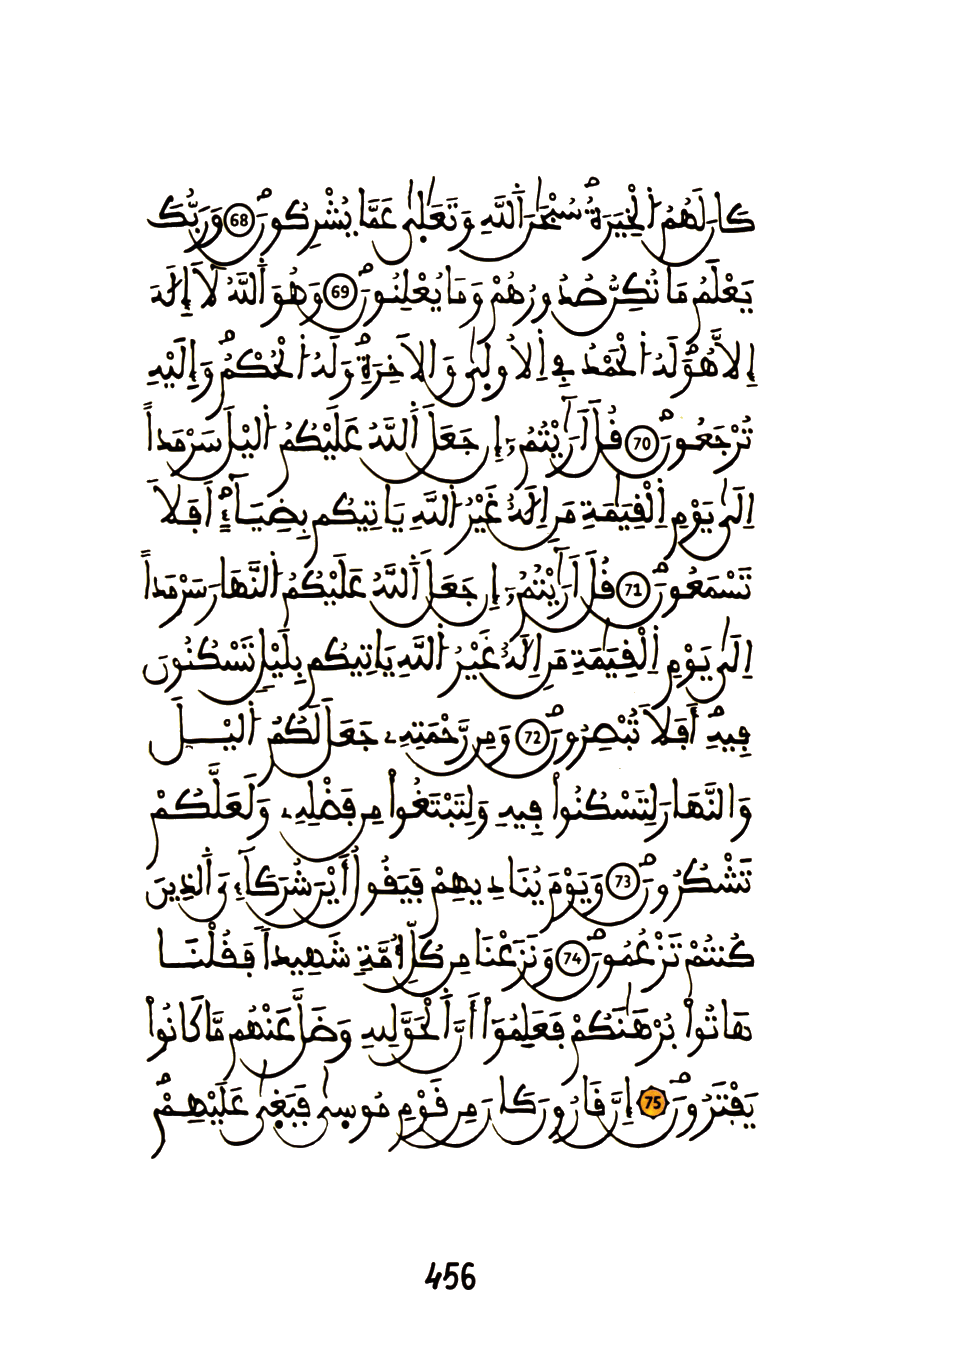 كَانَ لَهُمُ اُ۬لْخِيَرَةُۖ سُبْحَٰنَ اَ۬للَّهِ وَتَعَٰل۪ىٰ عَمَّا يُشْرِكُونَۖ 68 وَرَبُّكَ
يَعْلَمُ مَا تُكِنُّ صُدُورُهُمْ وَمَا يُعْلِنُونَۖ 69 وَهُوَ اَ۬للَّهُ لَآ إِلَٰهَ
إِلَّا هُوَۖ لَهُ اُ۬لْحَمْدُ فِے اِ۬لُاول۪ىٰ وَالَاخِرَةِۖ وَلَهُ اُ۬لْحُكْمُۖ وَإِلَيْهِ
تُرْجَعُونَۖ 70 قُلَ اَرَٰٓيْتُمُۥٓ إِن جَعَلَ اَ۬للَّهُ عَلَيْكُمُ اُ۬ليْلَ سَرْمَداً
اِلَىٰ يَوْمِ اِ۬لْقِيَٰمَةِ مَنِ اِلَٰهٌ غَيْرُ اُ۬للَّهِ يَاتِيكُم بِضِيَآءٍۖ اَفَلَا
تَسْمَعُونَۖ 71 قُلَ اَرَٰٓيْتُمُۥٓ إِن جَعَلَ اَ۬للَّهُ عَلَيْكُمُ اُ۬لنَّهَارَ سَرْمَداً
اِلَىٰ يَوْمِ اِ۬لْقِيَٰمَةِ مَنِ اِلَٰهٌ غَيْرُ اُ۬للَّهِ يَاتِيكُم بِلَيْلٖ تَسْكُنُونَ
فِيهِۖ أَفَلَا تُبْصِرُونَۖ 72 وَمِن رَّحْمَتِهِۦ جَعَلَ لَكُمُ اُ۬ليْلَ
وَالنَّهَارَ لِتَسْكُنُواْ فِيهِ وَلِتَبْتَغُواْ مِن فَضْلِهِۦ وَلَعَلَّكُمْ
تَشْكُرُونَۖ 73 وَيَوْمَ يُنَادِيهِمْ فَيَقُولُ أَيْنَ شُرَكَآءِيَ اَ۬لذِينَ
كُنتُمْ تَزْعُمُونَۖ 74 وَنَزَعْنَا مِن كُلِّ أُمَّةٖ شَهِيداً فَقُلْنَا
هَاتُواْ بُرْهَٰنَكُمْ فَعَلِمُوٓاْ أَنَّ اَ۬لْحَقَّ لِلهِ وَضَلَّ عَنْهُم مَّا كَانُواْ
يَفْتَرُونَۖ 75 إِنَّ قَٰرُونَ كَانَ مِن قَوْمِ مُوس۪ىٰ فَبَغ۪ىٰ عَلَيْهِمْۖ
456